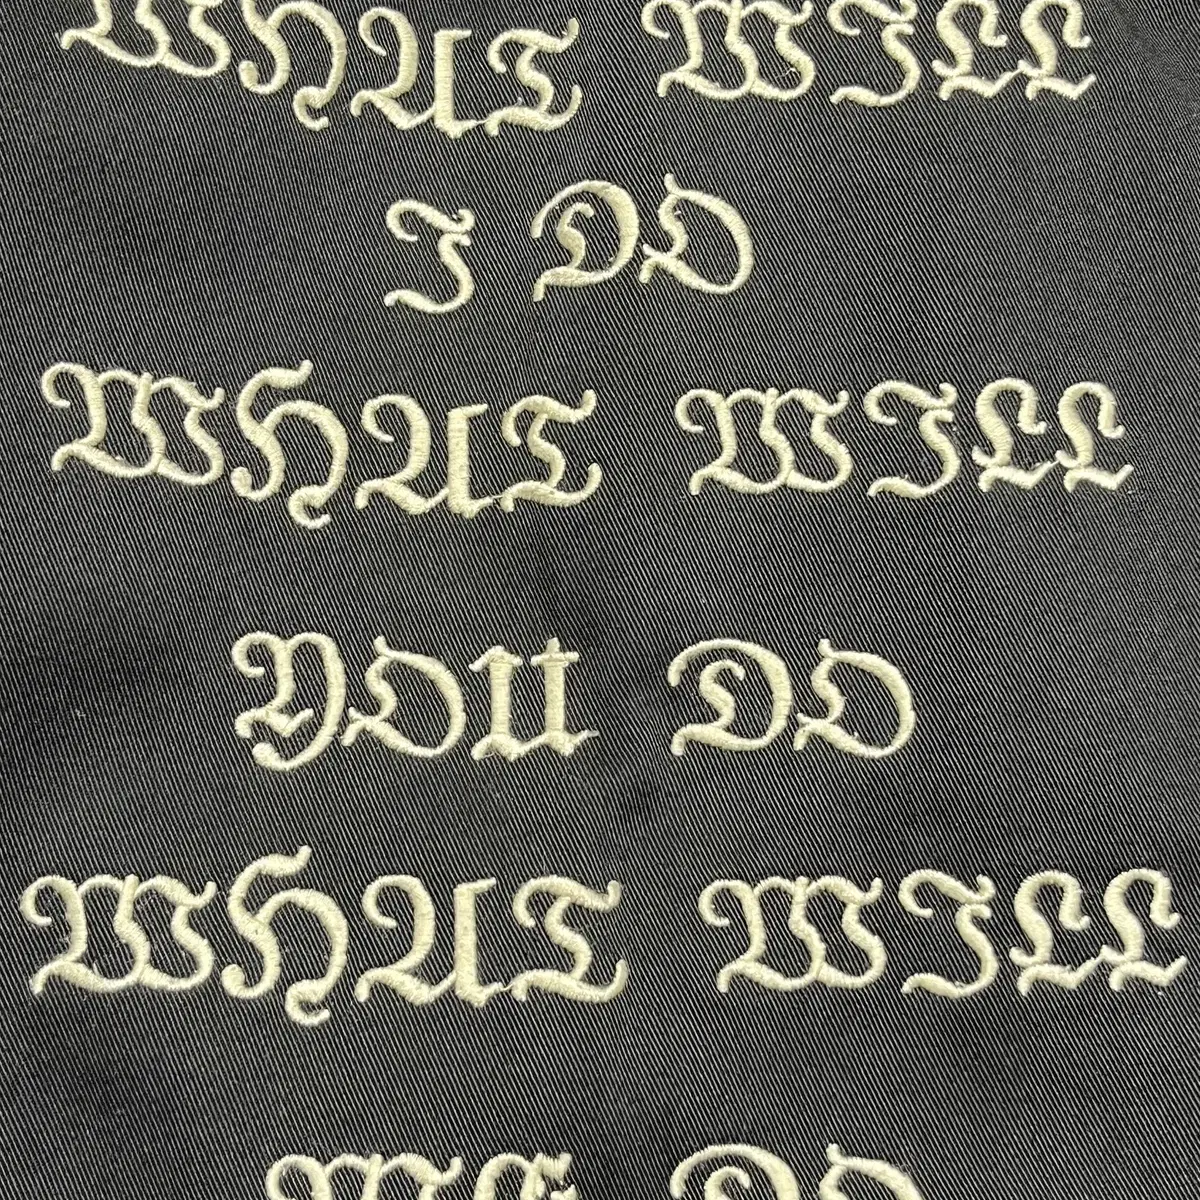 WHAT WILL
I DO
WHAT WILL
YOU DO
WHAT WILL
WE DO